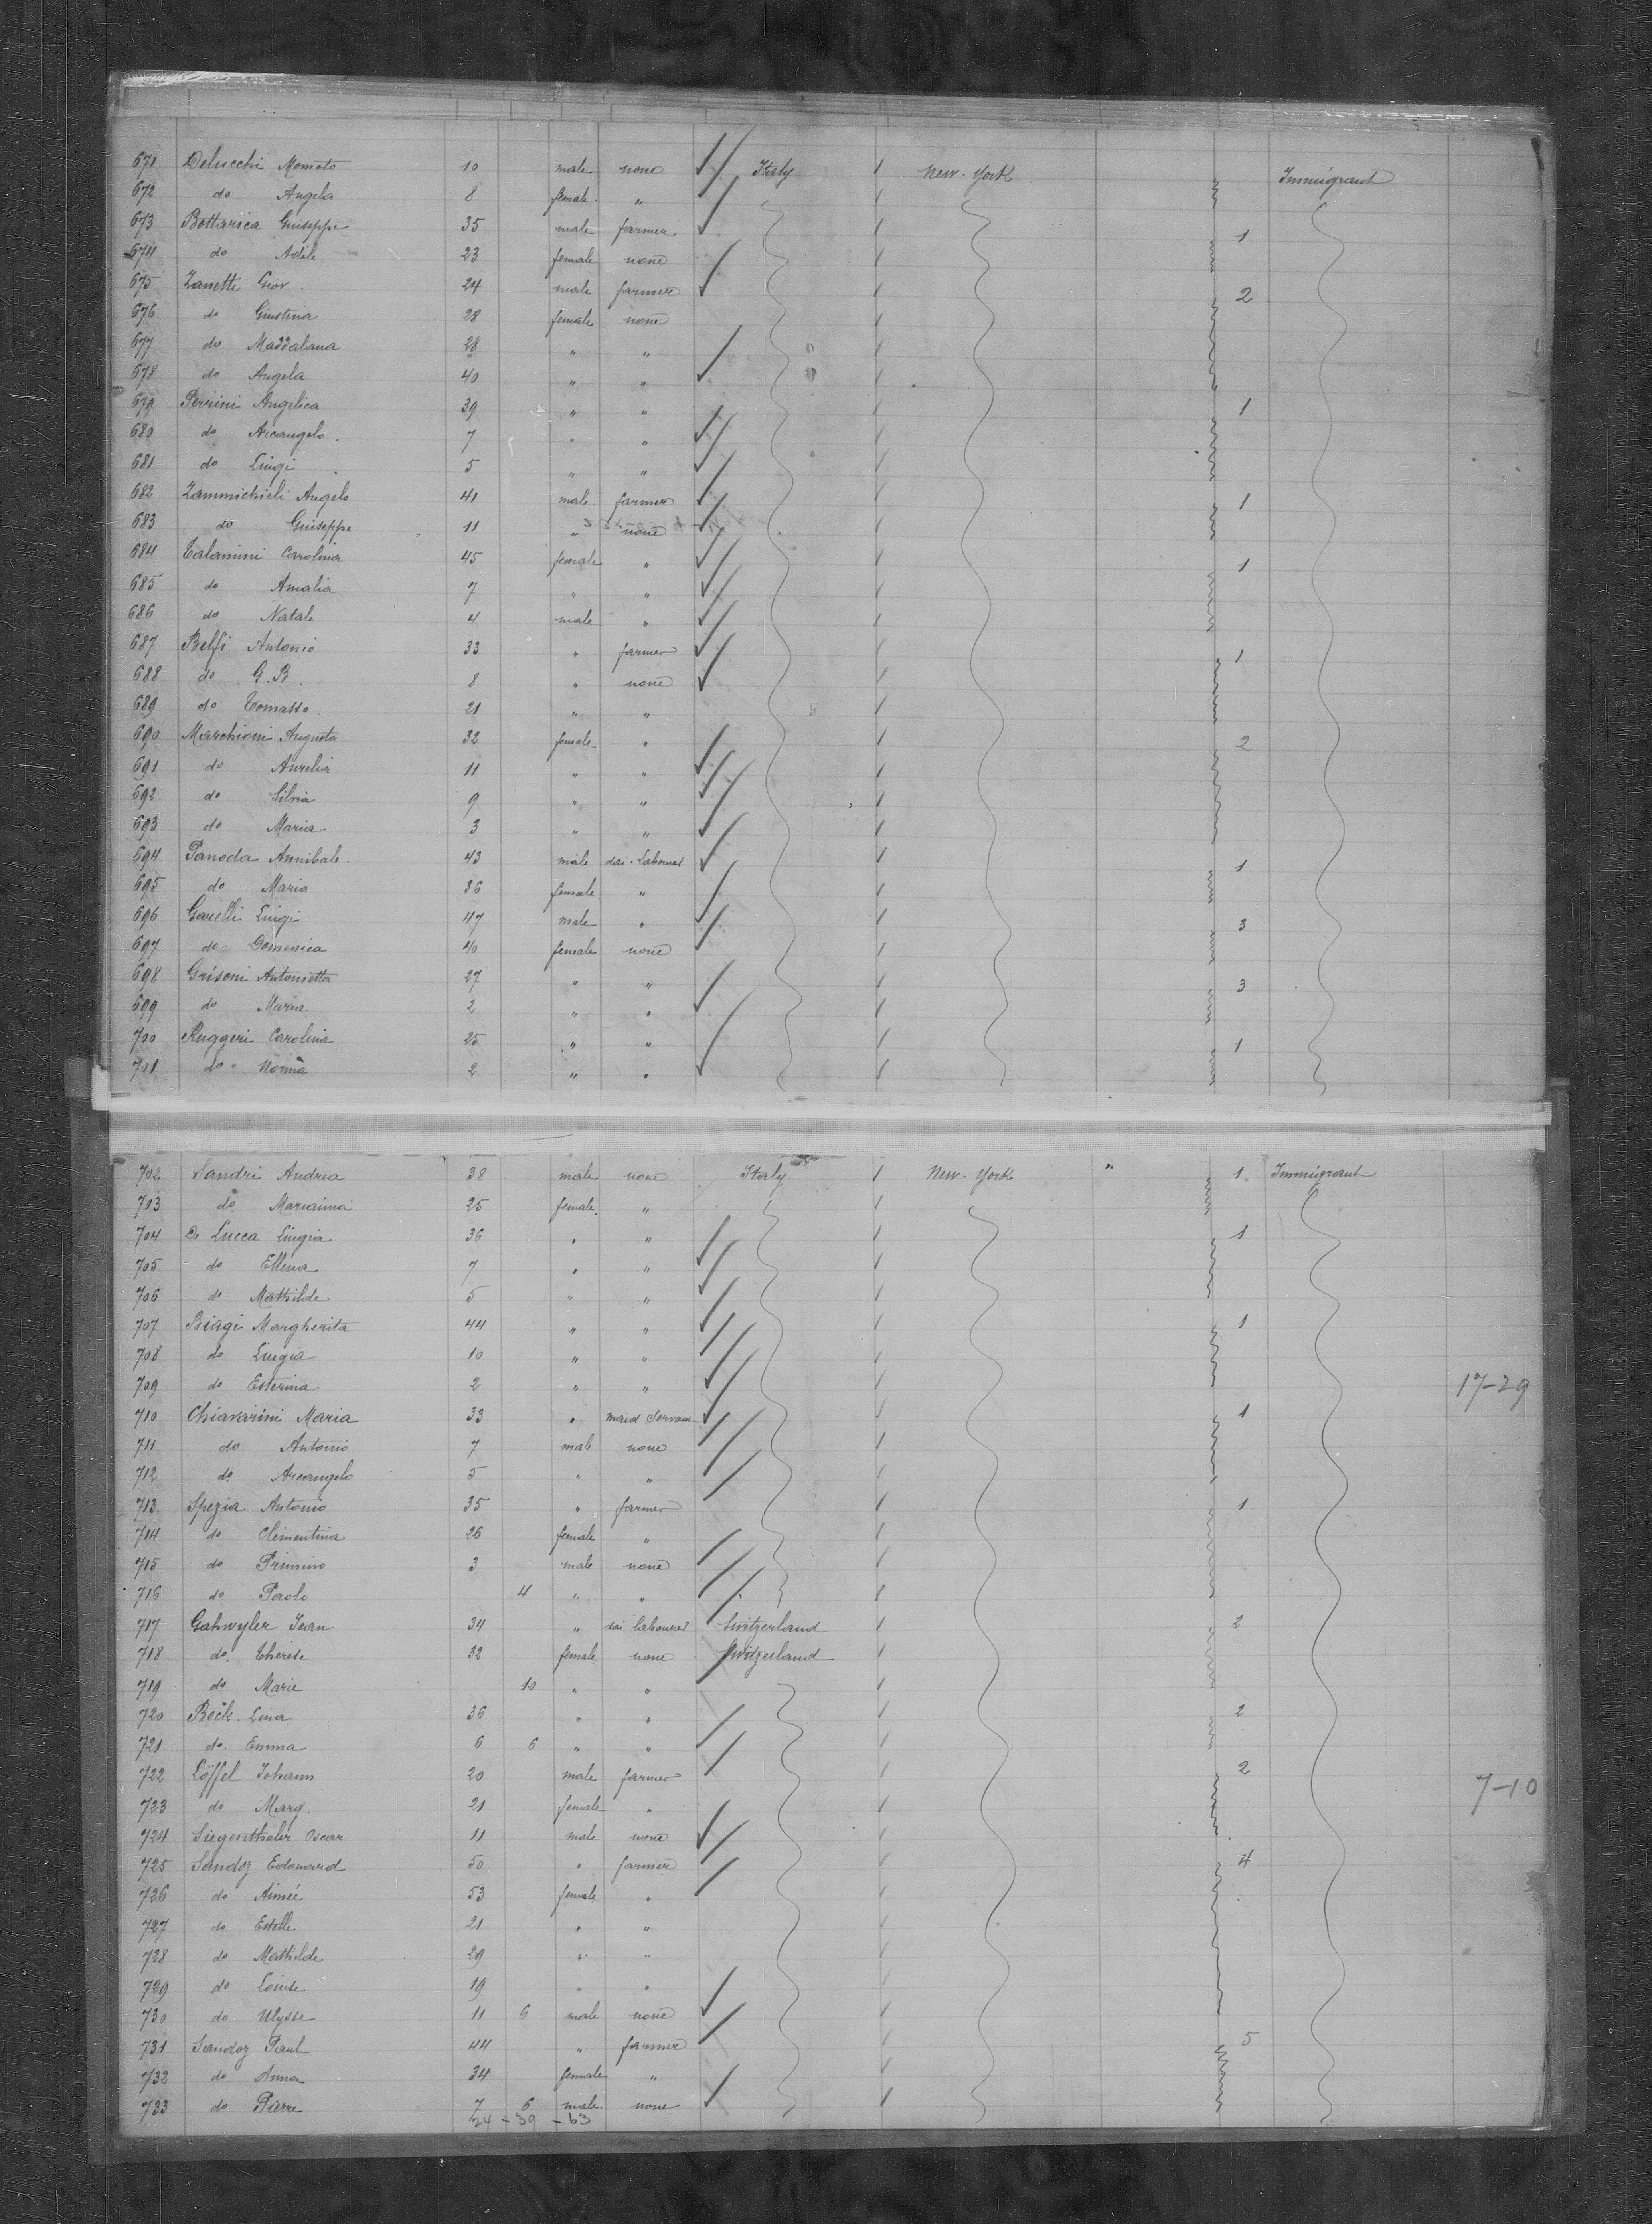 671 Delucchi Momoto 10 male none Italy 1 New-York Immigrant
672 do Angela 8 female " 1
673 Bottarica Giuseppe 35 male farmer 1 1
674 do Adele 23 female none 1
675 Zanetti Giov. 24 male farmer 1 2
676 do Giustina 28 female none 1
677 do Maddalana 28 " " 1
678 do Angela 40 " " 1
679 Perrini Angelica 39 " " 1 1
680 do Arcangelo. 7 " " 1
681 do Luigi 5 " " 1
682 Zammichieli Angelo 41 male farmer 1 1
683 do Giuseppe 11 " none 1
684 Talamini Carolina 45 female " 1 1
685 do Amalia 7 " " 1
686 do Natale 4 male " 1
687 Belfi Antonio 33 " farmer 1 1
688 do G. B. 8 " none 1
689 do Tomasso. 21 " " 1
690 Marchioni Augusta 32 female " 1 2
691 do Aurelia 11 " " 1
692 do Silvia 9 " " 1
693 do Maria 3 " " 1
694 Panoda Annibale. 43 male dai. Labourer 1 1
695 do Maria 36 female " 1
696 Garelli Luigi 47 male " 1 3
697 do Domenica 40 female none 1
698 Grisoni Antonietta 27 " " 1 3
699 do Maria 2 " " 1
700 Ruggeri Carolina 25 " " 1 1
701 do Norma 2 " " 1
702 Sandri Andrea 38 male none Italy 1 New-York " 1 Immigrant
703 do Marianna 25 female. " 1
704 De Lucca Luigia 36 " " 1 1
705 do Ellena 7 " " 1
706 do Mathilde 5 " " 1
707 Biagi Margherita 44 " " 1 1
708 do Luigia 10 " " 1
709 do Esterina 2 " " 1 17-29
710 Chiavarini Maria 33 " maid Servant 1 1
711 do Antonio 7 male none 1
712 do Arcangelo 5 " " 1
713 Spezia Antonio 35 " farmer 1 1
714 do Clementina 26 female " 1
715 do Primino 3 male none 1
716 do Paolo 4 " " 1
717 Gahwyler Jean 34 " dai labourer Switzerland 1 2
718 do. Therese 32 female none Switzerland 1
719 do Marie 10 " " 1
720 Beck. Lina 36 " " 1 2
721 do. Emma 6 6 " " 1
722 Löffel Johann 20 male farmer 1 2
723 do Marg. 21 female " 1 7-10
724 Siegenthaler Oscar 11 male none 1
725 Sandoz Edouard 50 " farmer 1 4
726 do Aimée 53 female " 1
727 do Estelle 21 " " 1
728 do Mathilde 29 " " 1
729 do Louise 19 " " 1
730 do Ulysse 11 6 male none 1
731 Sandoz Paul 44 " farmer 1 5
732 do Anna 34 female " 1
733 do Pierre 7 6 male none 1
24 - 39 - 63